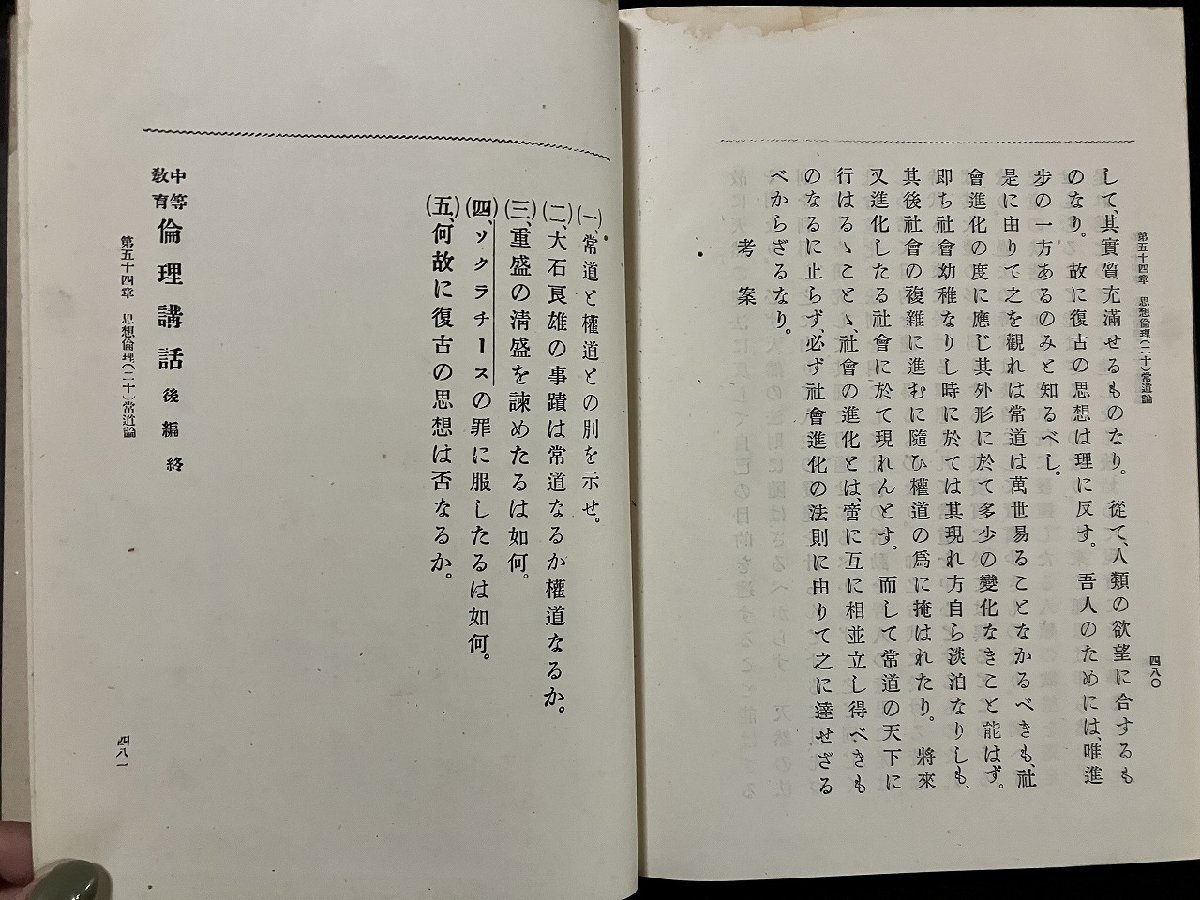 第五十四章 思想倫理(二十)常道論
四八〇
して、其實質充滿せるものなり。從て、人類の欲望に合するも
のなり。故に復古の思想は理に反す。吾人のためには、唯進
步の一方あるのみと知るべし。
是に由りて之を觀れは常道は萬世易ることなかるべきも、社
會進化の度に應じ其外形に於て多少の變化なきこと能はず。
卽ち社會幼稚なりし時に於ては其現れ方自ら淡泊なりしも、
其後社會の複雜に進むに隨ひ權道の爲に掩はれたり。將來
又進化したる社會に於て現れんとす。而して常道の天下に
行はるゝことゝ、社會の進化とは、啻に互に相並立し得べきも
のなるに止らず、必ず社會進化の法則に由りて之に達せざる
べからざるなり。
考案
(一)、常道と權道との別を示せ。
(二)、大石良雄の事蹟は常道なるか權道なるか。
(三)、重盛の淸盛を諫めたるは如何。
(四)、ソクラチースの罪に服したるは如何。
(五)、何故に復古の思想は否なるか。
中等敎育 倫理講話 後編 終
第五十四章 思想倫理(二十)常道論
四八一